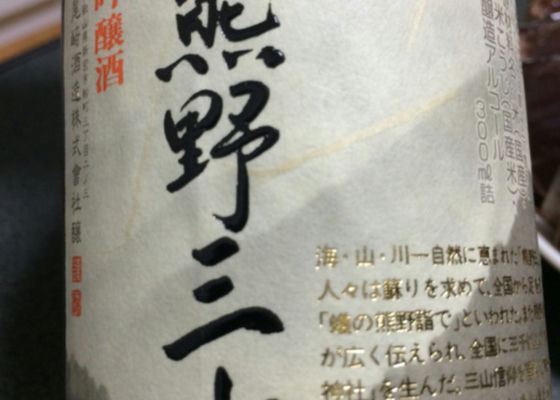 国産米)、
米こうじ(国産米)・
醸造アルコール
300ml詰
熊野三
吟醸酒
尾﨑酒造株式會社醸
海・山・川―自然に恵まれた「熊野
人々は蘇りを求めて、全国から
「蟻の熊野詣で」といわれた。また
が広く伝えられ、全国に三千
神社」を生んだ。三山信仰を